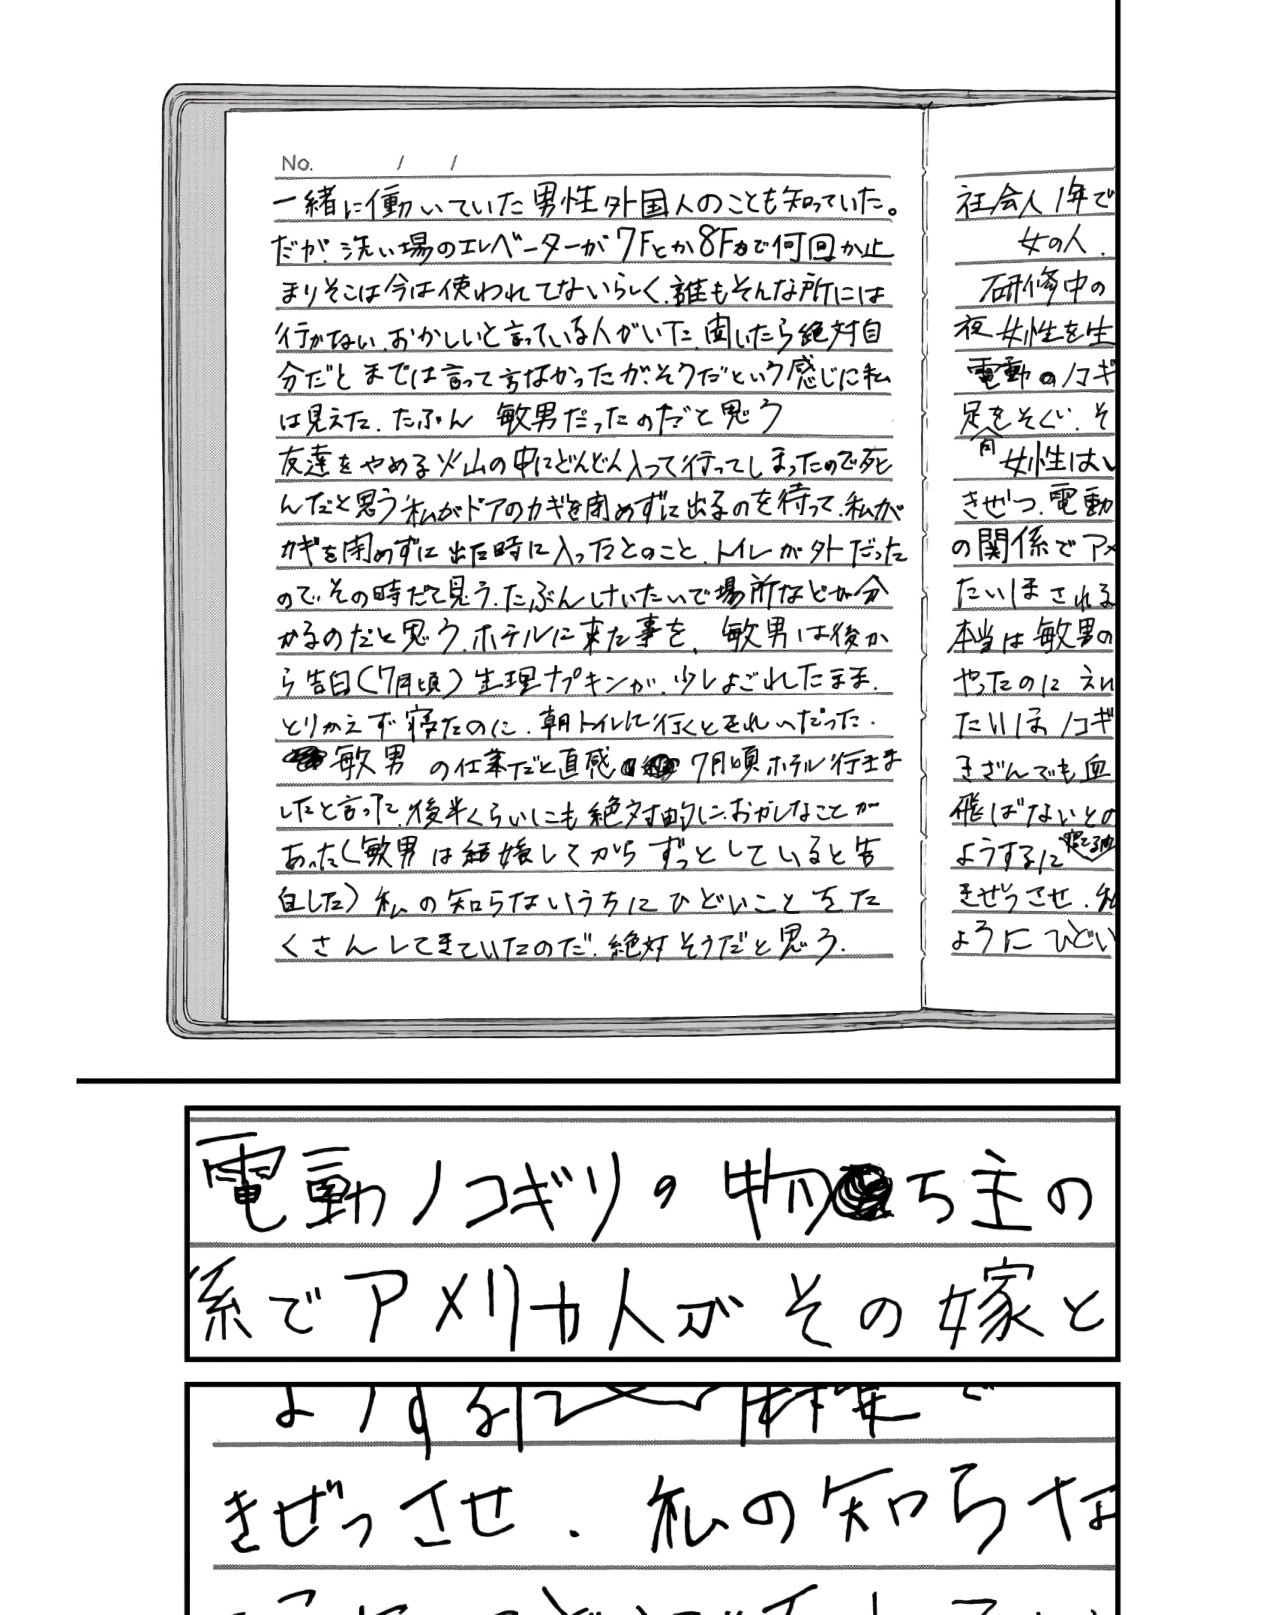 No. / /
一緒に働いていた男性外国人のことも知っていた。
だが、洗い場のエレベーターが7Fとか8Fかで何回か止
まりそこは今は使われてないらしく、誰もそんな所には
行かない、おかしいと言っている人がいた、聞いたら絶対自
分だとまでは言って言なかったが、そうだという感じに私
は見えた、たぶん 敏男だったのだと思う
友達をやめる火山の中にどんどん入って行ってしまったので死
んだと思う私がドアのカギを閉めずに出るのを待って、私が
カギを閉めずに出た時に入ったとのこと、トイレが外だった
ので、その時だと思う、たぶんけいたいで場所などが分
かるのだと思う、ホテルに来た事を、敏男は後か
ら告白(7月頃)生理ナプキンが、少しよごれたまま、
とりかえず寝たのに、朝トイレに行くときれいだった、
敏男 の仕業だと直感 7月頃ホテル行きま
したと言った、後半くらいにも絶対的に、おかしなことが
あった(敏男は結婚してからずっとしていると告
白した)私の知らないうちにひどいことをた
くさんしてきていたのだ、絶対そうだと思う、
社会人1年で
女の人、
研修中の
夜女性を生
電動のノコギ
足をそぐ、そ
内
女性はい
きぜつ、電動
の関係でアメ
たいほされる
本当は敏男の
やったのにえん
たいほノコギ
きざんでも血
飛ばないとの
ようするに
きぜつさせ、私
ようにひどい
電動ノコギリの物ち主の
係でアメリカ人がその嫁と
ようするに
きぜっさせ、私の知らな